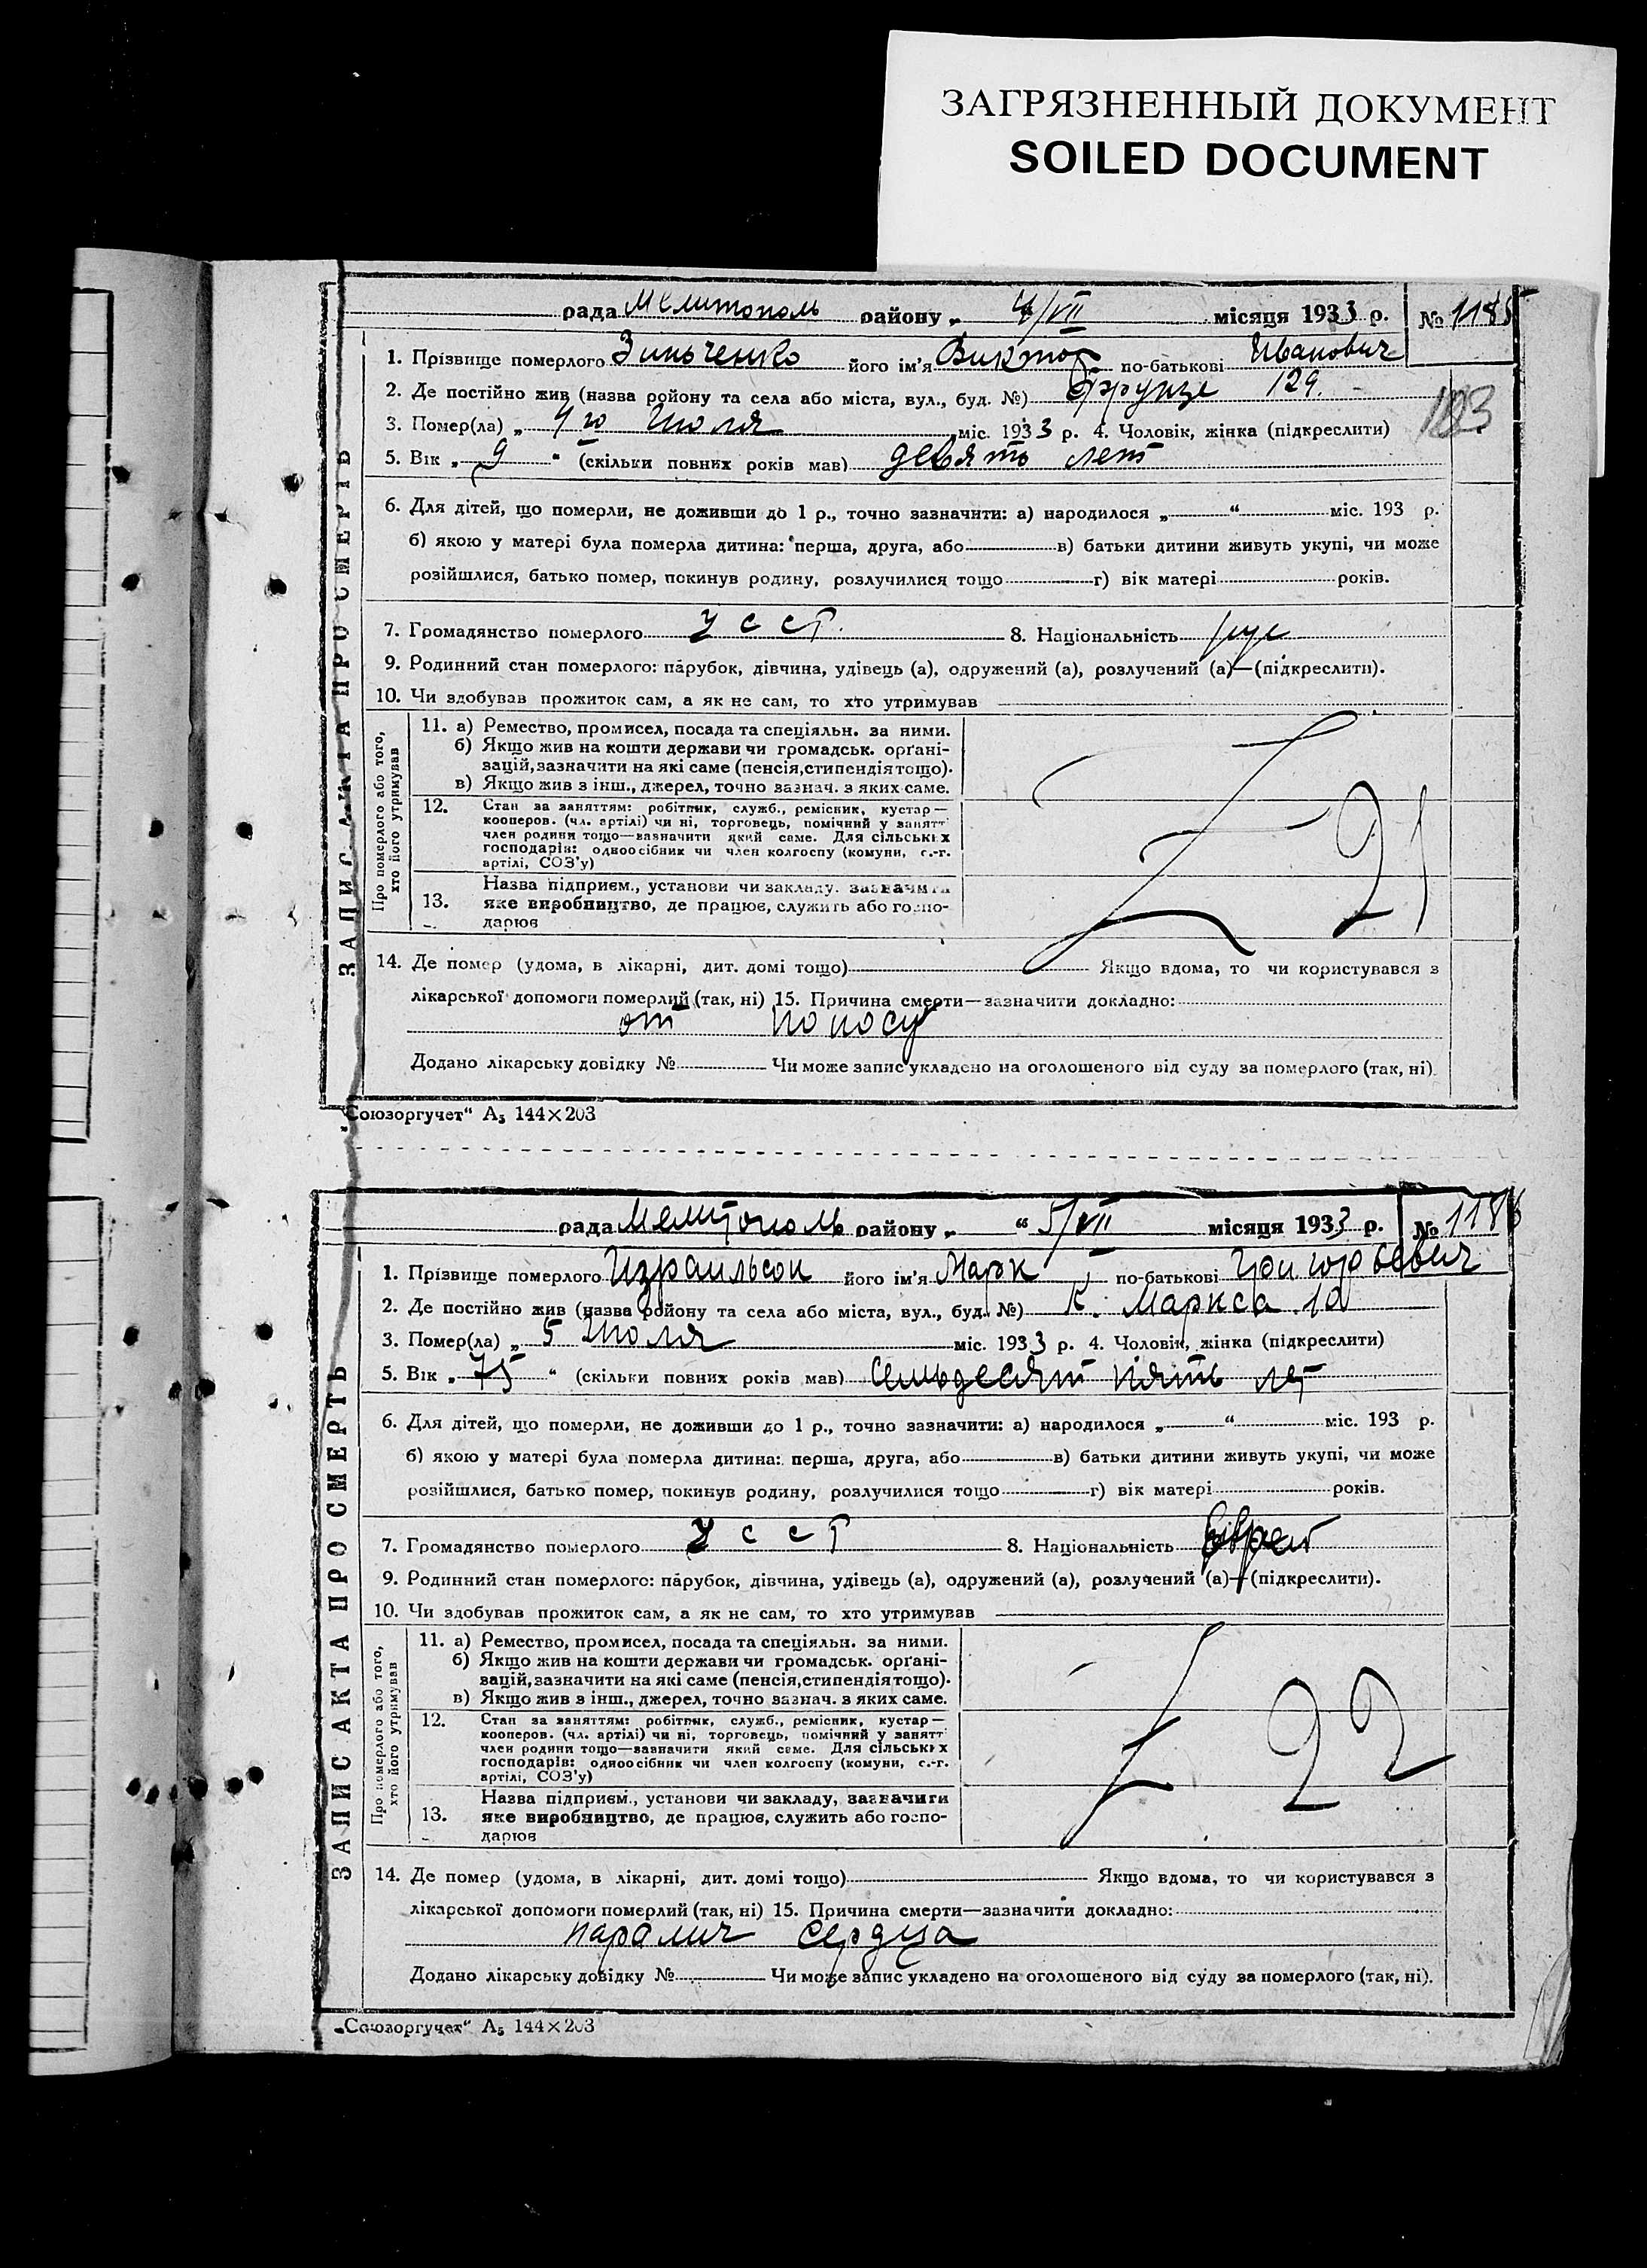 ЗАГРЯЗНЕННЫЙ ДОКУМЕНТ
SOILED DOCUMENT
ЗАПИС АКТА ПРО СМЕРТЬ
рада Мелитополь району „ 4/VII місяця 1933 р. № 1185
1. Прізвище померлого Зинченко його ім'я Виктор по-батькові Иванович
2. Де постійно жив (назва району та села або міста, вул., буд. №) Фрунзе 129.
193
3. Помер(ла) „ 4го Июля міс. 1933 р. 4. Чоловік, жінка (підкреслити)
5. Вік „ 9 “ (скільки повних років мав) девять лет
6. Для дітей, що померли, не доживши до 1 р., точно зазначити: а) народилося „ “ міс. 193 р.
б) якою у матері була померла дитина: перша, друга, або в) батьки дитини живуть укупі, чи може
розійшлися, батько помер, покинув родину, розлучилися тощо г) вік матері років.
7. Громадянство померлого УССР. 8. Національність рус
9. Родинний стан померлого: парубок, дівчина, удівець (а), одружений (а), розлучений (а)—(підкреслити).
10. Чи здобував прожиток сам, а як не сам, то хто утримував
Про померлого або того, хто його утримував
11. а) Ремество, промисел, посада та спеціяльн. за ними.
б) Якщо жив на кошти держави чи громадськ. орґані-
зацій, зазначити на які саме (пенсія, стипендія тощо).
в) Якщо жив з інш., джерел, точно зазнач. з яких саме.
12. Стан за заняттям: робітник, служб., ремісник, кустар—
кооперов. (чл. артілі) чи ні, торговець, помічний у занятт
член родини тощо—зазначити який саме. Для сільських
господарів: одноосібник чи член колгоспу (комуни, с.-г.
артілі, СОЗ'у)
21
13. Назва підприєм., установи чи закладу, зазначити
яке виробництво, де працює, служить або госпо-
дарює
14. Де помер (удома, в лікарні, дит. домі тощо) Якщо вдома, то чи користувався з
лікарської допомоги померлий (так, ні) 15. Причина смерти—зазначити докладно:
от поносу
Додано лікарську довідку № Чи може запис укладено на оголошеного від суду за померлого (так, ні).
„Союзоргучет“ А5 144×203
ЗАПИС АКТА ПРО СМЕРТЬ
рада Мелитополь району „ “ 5/VII місяця 1933 р. № 1186
1. Прізвище померлого Израильсон його ім'я Марк по-батькові Григорьевич
2. Де постійно жив (назва району та села або міста, вул., буд. №) К. Маркса 10
3. Помер(ла) „ 5 Июля міс. 1933 р. 4. Чоловік, жінка (підкреслити)
5. Вік „ 75 “ (скільки повних років мав) семьдесят пять лет
6. Для дітей, що померли, не доживши до 1 р., точно зазначити: а) народилося „ “ міс. 193 р.
б) якою у матері була померла дитина: перша, друга, або в) батьки дитини живуть укупі, чи може
розійшлися, батько помер, покинув родину, розлучилися тощо г) вік матері років.
7. Громадянство померлого УССР 8. Національність Еврей
9. Родинний стан померлого: парубок, дівчина, удівець (а), одружений (а), розлучений (а)—(підкреслити).
10. Чи здобував прожиток сам, а як не сам, то хто утримував
Про померлого або того, хто його утримував
11. а) Ремество, промисел, посада та спеціяльн. за ними.
б) Якщо жив на кошти держави чи громадськ. орґані-
зацій, зазначити на які саме (пенсія, стипендія тощо).
в) Якщо жив з інш., джерел, точно зазнач. з яких саме.
12. Стан за заняттям: робітник, служб., ремісник, кустар—
кооперов. (чл. артілі) чи ні, торговець, помічний у занятт
член родини тощо—зазначити який саме. Для сільських
господарів: одноосібник чи член колгоспу (комуни, с.-г.
артілі, СОЗ'у)
22
13. Назва підприєм., установи чи закладу, зазначити
яке виробництво, де працює, служить або госпо-
дарює
14. Де помер (удома, в лікарні, дит. домі тощо) Якщо вдома, то чи користувався з
лікарської допомоги померлий (так, ні) 15. Причина смерти—зазначити докладно:
паралич сердца
Додано лікарську довідку № Чи може запис укладено на оголошеного від суду за померлого (так, ні).
„Союзоргучет“ А5 144×203